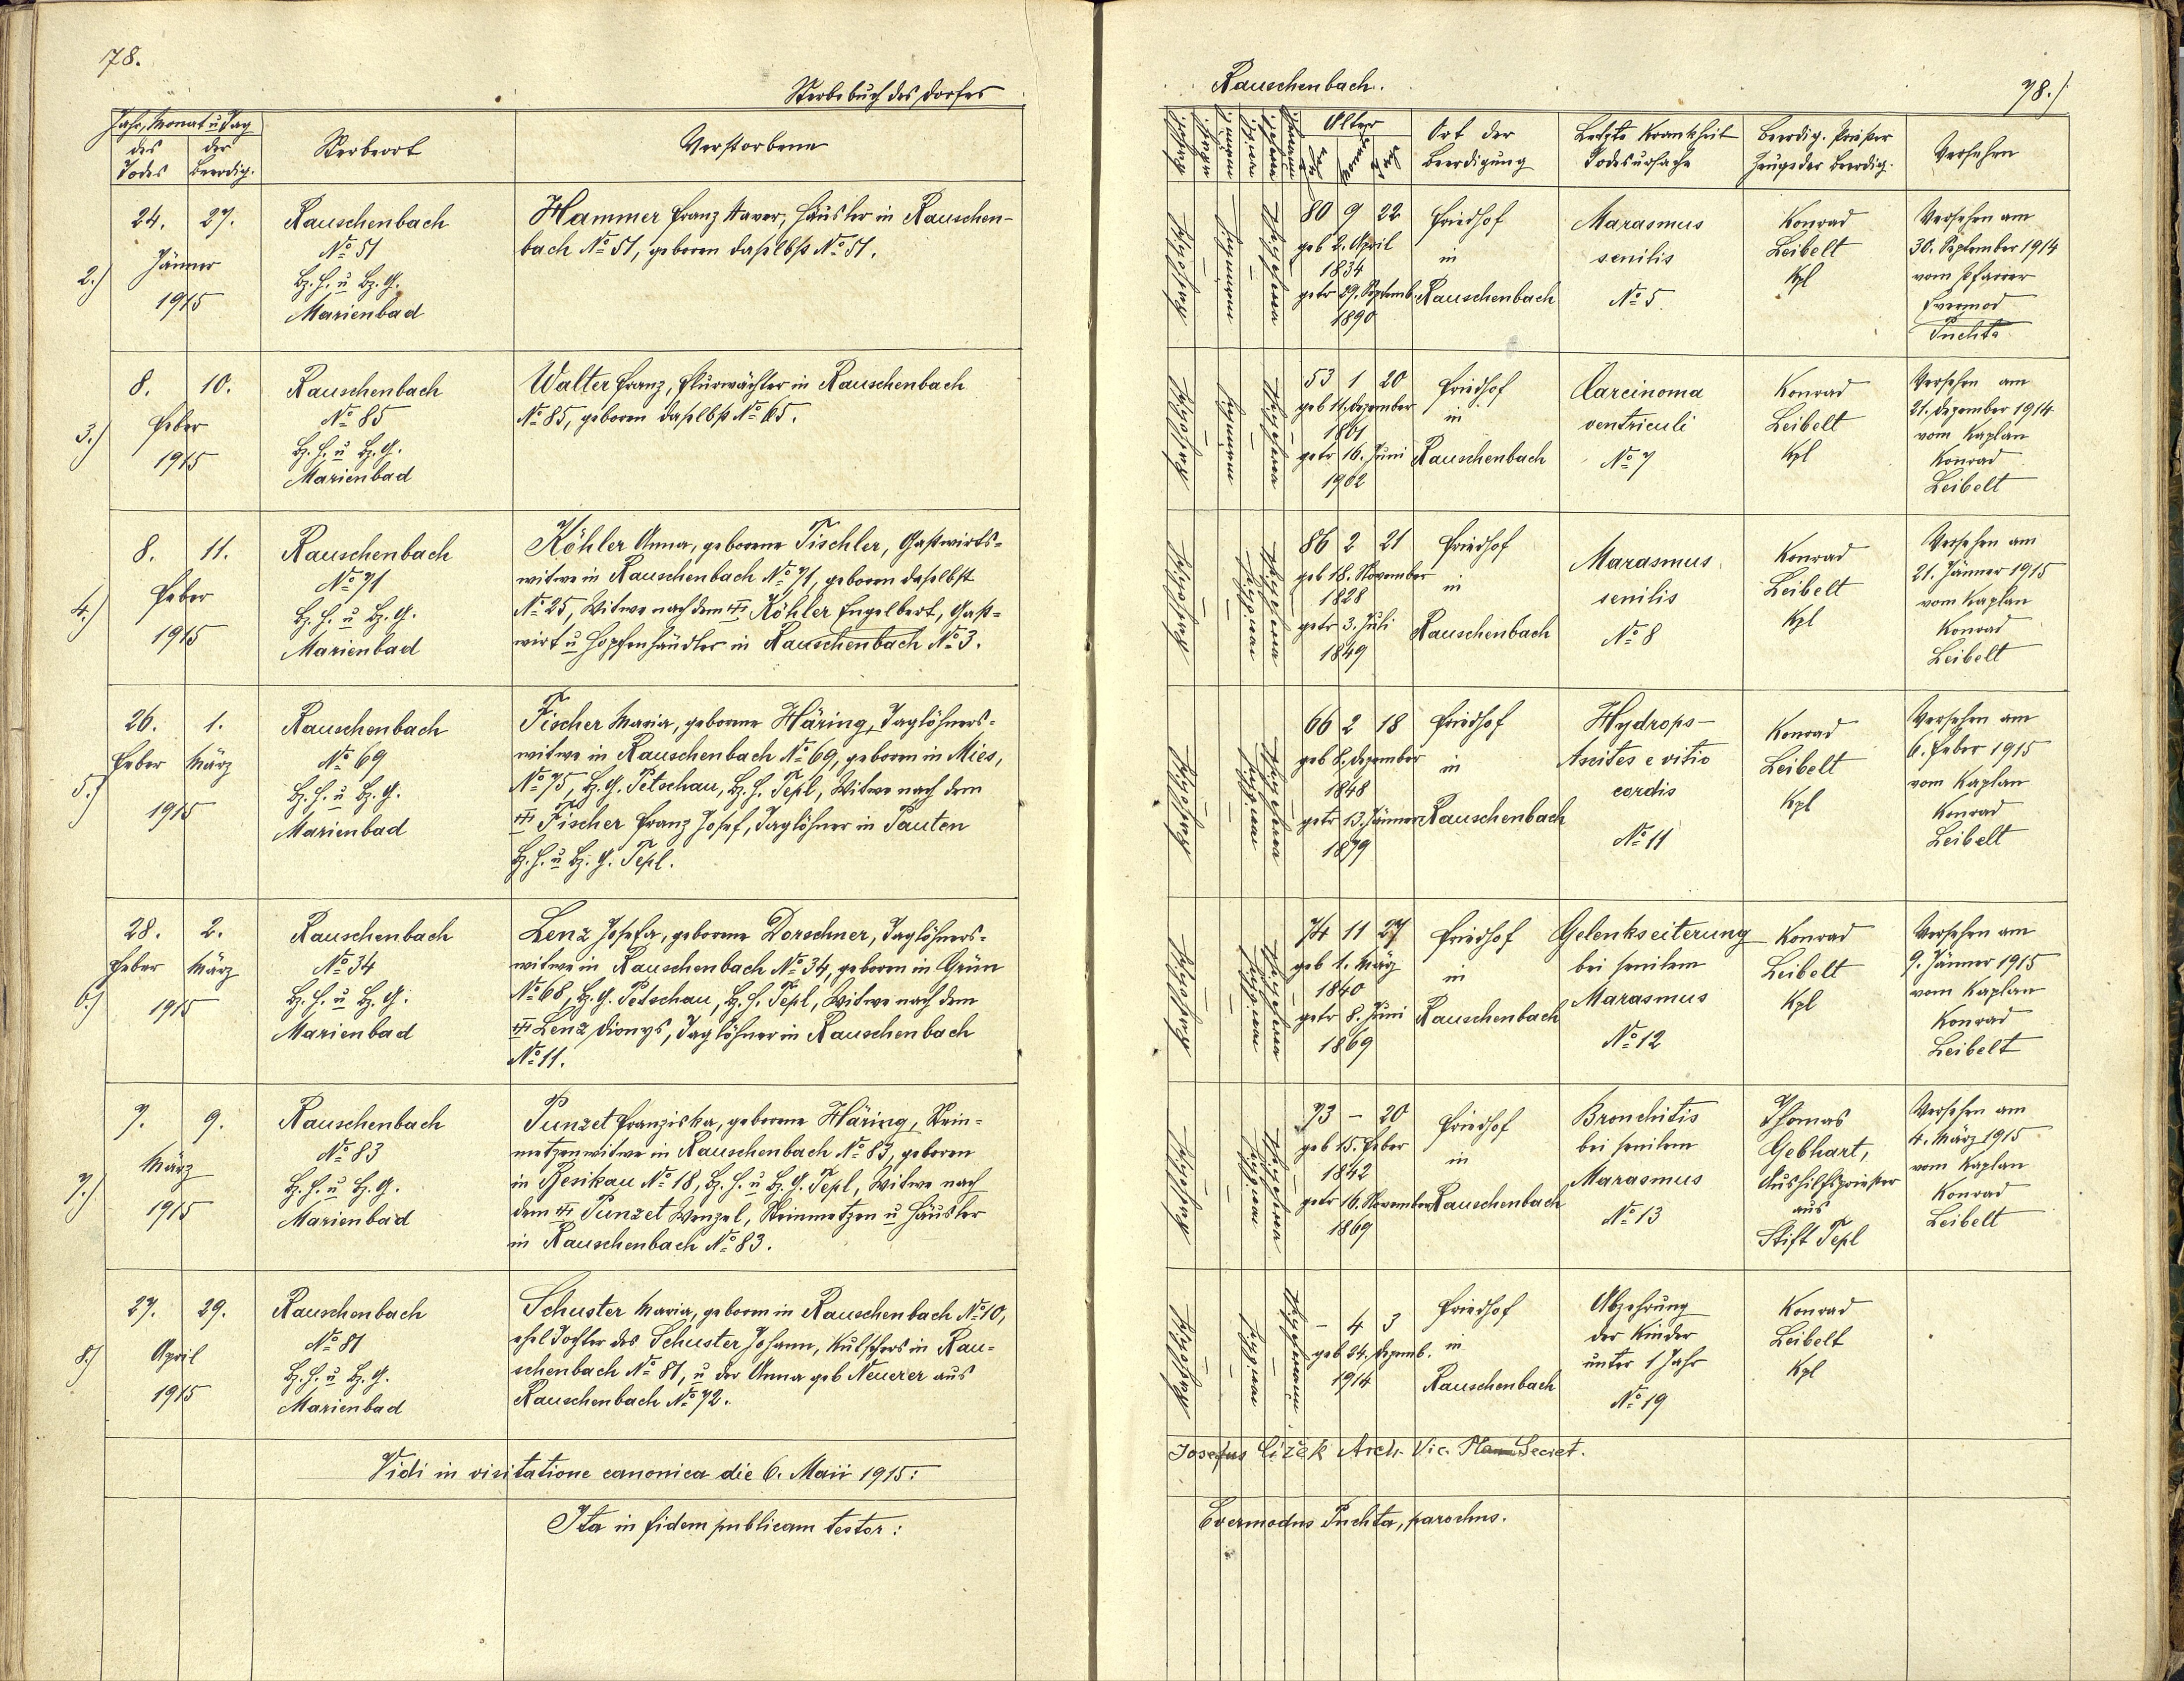 78.
Sterbebuch des Dorfes
Jahr, Monat u Tag
des Todes
der Beerdig.
Sterbeort
Verstorbene
2.)
24. 27.
Jänner
1915
Rauschenbach
No 51
Bz. H. u Bz. G.
Marienbad
Hammer Franz Xaver, Häusler in Rauschen-
bach No 51, geboren daselbst No 51.
3.)
8. 10.
Feber
1915
Rauschenbach
No 85
Bz. H. u Bz. G.
Marienbad
Walter Franz, Flurwächter in Rauschenbach
No 85, geboren daselbst No 65.
4.)
8. 11.
Feber
1915
Rauschenbach
No 71
Bz. H. u Bz. G.
Marienbad
Köhler Anna, geborene Tischler, Gastwirts-
witwe in Rauschenbach No 71, geboren daselbst
No 25, Witwe nach dem Köhler Engelbert, Gast-
wirt u Hopfenhändler in Rauschenbach No 3.
5.)
26. 1.
Feber März
1915
Rauschenbach
No 69
Bz. H. u Bz. G.
Marienbad
Fischer Maria, geborene Häring, Taglöhners-
witwe in Rauschenbach No 69, geboren in Mies,
No 75, Bz. G. Petschau, Bz. H. Tepl, Witwe nach dem
Fischer Franz Josef, Taglöhner in Pauten
Bz. H. u Bz. G. Tepl.
6.)
28. 2.
Feber März
1915
Rauschenbach
No 34
Bz. H. u Bz. G.
Marienbad
Lenz Josefa, geborene Dorschner, Taglöhners-
witwe in Rauschenbach No 34, geboren in Grün
No 68, Bz. G. Petschau, Bz. H. Tepl, Witwe nach dem
Lenz Dionys, Taglöhner in Rauschenbach
No 11.
7.)
7. 9.
März
1915
Rauschenbach
No 83
Bz. H. u Bz. G.
Marienbad
Punzet Franziska, geborene Häring, Stein-
metzenwitwe in Rauschenbach No 83, geboren
in Resikau No 18, Bz. H. u Bz. G. Tepl, Witwe nach
dem Punzet Wenzel, Steinmetzen u Häusler
in Rauschenbach No 83.
8.)
27. 29.
April
1915
Rauschenbach
No 81
Bz. H. u Bz. G.
Marienbad
Schuster Maria, geboren in Rauschenbach No 10,
ehel Tochter des Schuster Johann, Kutschers in Rau-
schenbach No 81, u der Anna geb Neuerer aus
Rauschenbach No 72.
Vidi in visitatione canonica die 6. Maii 1915:
Ita in fidem publicam testor:
Rauschenbach.
78.)
Alter
Ort der
Beerdigung
Letzte Krankheit
Todesursache
Beerdig. Priester
Zeuge der Beerdig.
Versehen
80 9 22
geb 2. April
1834
getr 29. Septemb.
1890
Friedhof
in
Rauschenbach
Marasmus
senilis
No 5
Konrad
Leibelt
Kpl
Versehen am
30. September 1914
vom Pfarrer
Evermod
Puchta
53 1 20
geb 11. Dezember
1861
getr 16. Juni
1902
Friedhof
in
Rauschenbach
Carcinoma
ventriculi
No 7
Konrad
Leibelt
Kpl
Versehen am
21. Dezember 1914
vom Kaplan
Konrad
Leibelt
86 2 21
geb 18. November
1828
getr 3. Juli
1849
Friedhof
in
Rauschenbach
Marasmus
senilis
No 8
Konrad
Leibelt
Kpl
Versehen am
21. Jänner 1915
vom Kaplan
Konrad
Leibelt
66 2 18
geb 8. Dezember
1848
getr 13. Jänner
1879
Friedhof
in
Rauschenbach
Hydrops-
Ascites e vitio
cordis
No 11
Konrad
Leibelt
Kpl
Versehen am
6. Feber 1915
vom Kaplan
Konrad
Leibelt
74 11 27
geb 1. März
1840
getr 8. Juni
1869
Friedhof
in
Rauschenbach
Gelenkseiterung
bei senilem
Marasmus
No 12
Konrad
Leibelt
Kpl
Versehen am
9. Jänner 1915
vom Kaplan
Konrad
Leibelt
73 - 20
geb 15. Feber
1842
getr 16. November
1869
Friedhof
in
Rauschenbach
Bronchitis
bei senilem
Marasmus
No 13
Thomas
Gebhart,
Aushilfspriester
aus
Stift Tepl
Versehen am
4. März 1915
vom Kaplan
Konrad
Leibelt
- 4 3
geb 24. Dezemb.
1914
Friedhof
in
Rauschenbach
Abzehrung
der Kinder
unter 1 Jahr
No 19
Konrad
Leibelt
Kpl
Josefus Čížek Arch. Vic. Secret.
Evermodus Puchta, parochus.